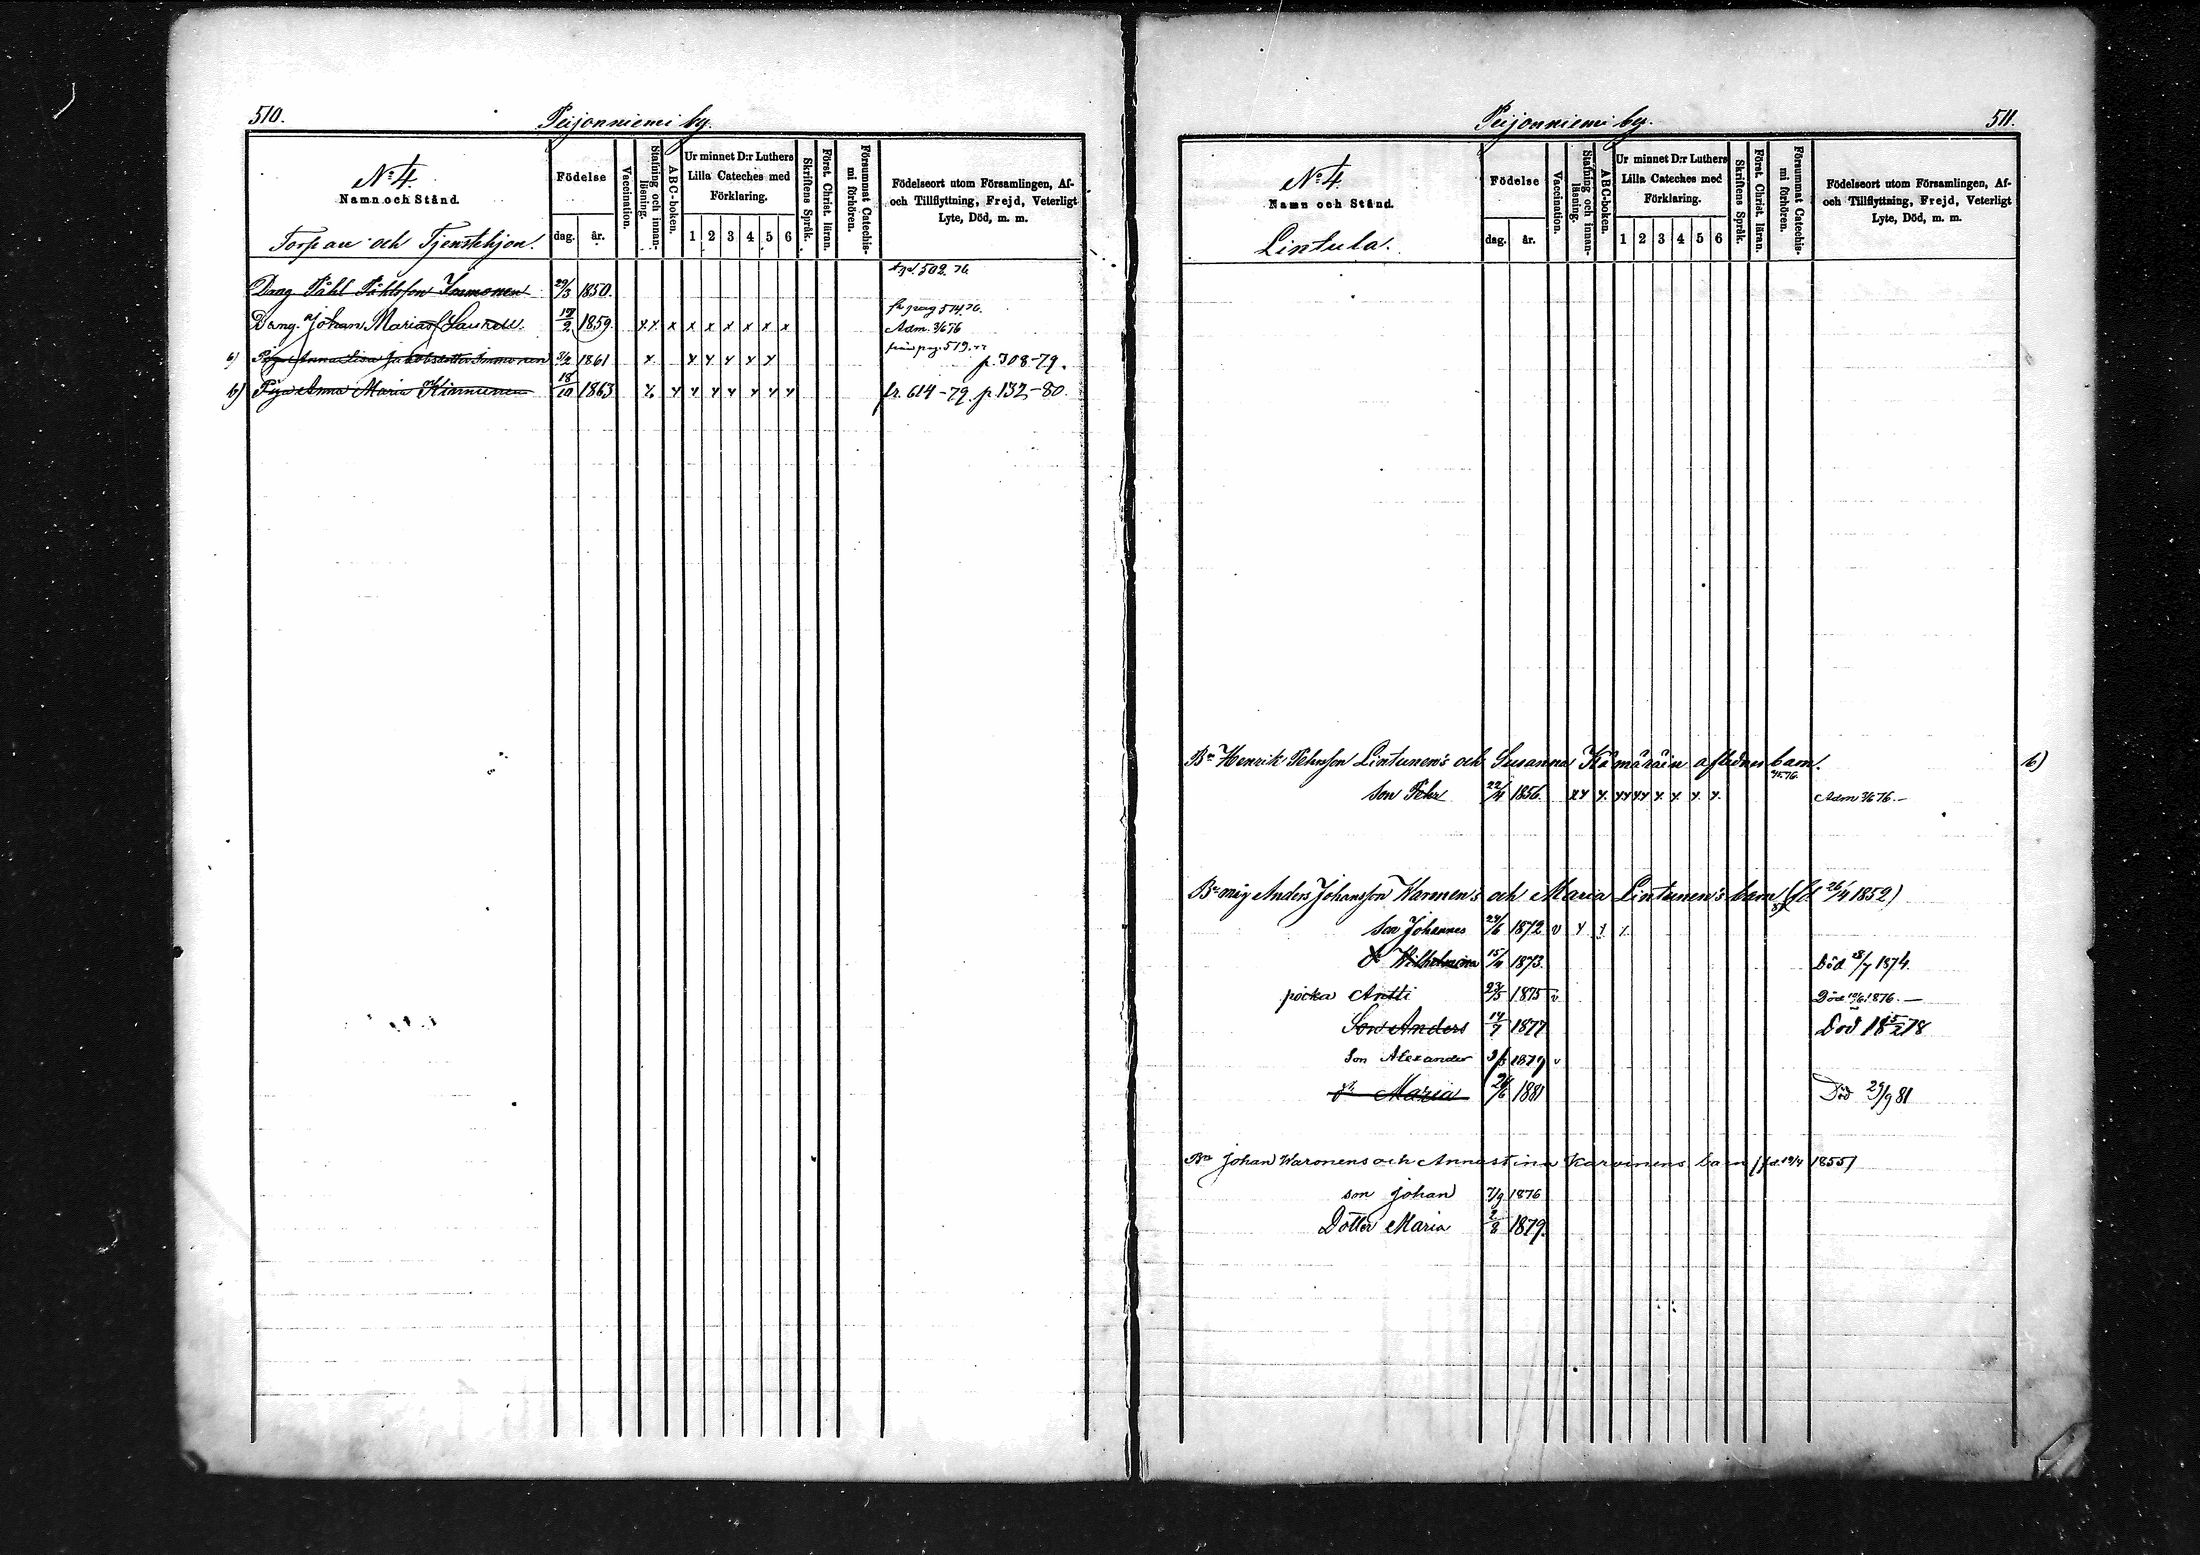 510.
Peijonniemi by.
No 4.
Namn och Stånd.
Torpare och Tjenstehjon.
Födelse
dag. år.
Vaccination.
Stafning och innan-läsning.
ABC-boken.
Ur minnet D:r Luthers Lilla Cateches med Förklaring.
1 2 3 4 5 6
Skriftens Språk.
Först. Christ. läran.
Försummat Catechis-mi förhören.
Födelseort utom Församlingen, Af- och Tillflyttning, Frejd, Veterligt Lyte, Död, m. m.
Dräng Påhl Påhlsson Immonen 29/3 1850.
502. 76
fr pag 514 76.
Dräng. Johan 17/2 1859. x x x x x x x x x Adm. 3/6 76
från pag. 519.
b) Piga Anna Lisa Jakobsdotter Immonen 1861 x x x x x x p. 308-79.
b) Piga Anna Maria Kinnunen 18/10 1863 x x x x x x x x fr. 614-79. p 132-80.
Peijonniemi by.
511.
No 4.
Namn och Stånd.
Lintula.
Födelse
dag. år.
Vaccination.
Stafning och innan-läsning.
ABC-boken.
Ur minnet D:r Luthers Lilla Cateches med Förklaring.
1 2 3 4 5 6
Skriftens Språk.
Först. Christ. läran.
Försummat Catechis-mi förhören.
Födelseort utom Församlingen, Af- och Tillflyttning, Frejd, Veterligt Lyte, Död, m. m.
Bn Henrik Pehrsson Lintunen's och Susanna Kämäräin aflidnes barn. b)
son Pehr 22/4 1856. x x x x x x x x x x x Adm 3/6 76.-
Bn: Anders Johansson och Maria Lintunen's barn (fd 26/4 1852)
son Johannes 24/6 1872 v x x x
dr Wilhelmina 15/4 1873. Död 28/7 1874.
poika Antti 23/5 1875 v Död 1876.-
Son Anders 14/7 1877 Död 18 15/2 78
Son Alexander 1879 v
dr. Maria 26/6 1881 Död 29/9 81
Bn Johan Waronens och Annastina Karvinens barn (fd. 19/4 1855)
son Johan 7/9 1876
Dotter Maria 2/8 1879.